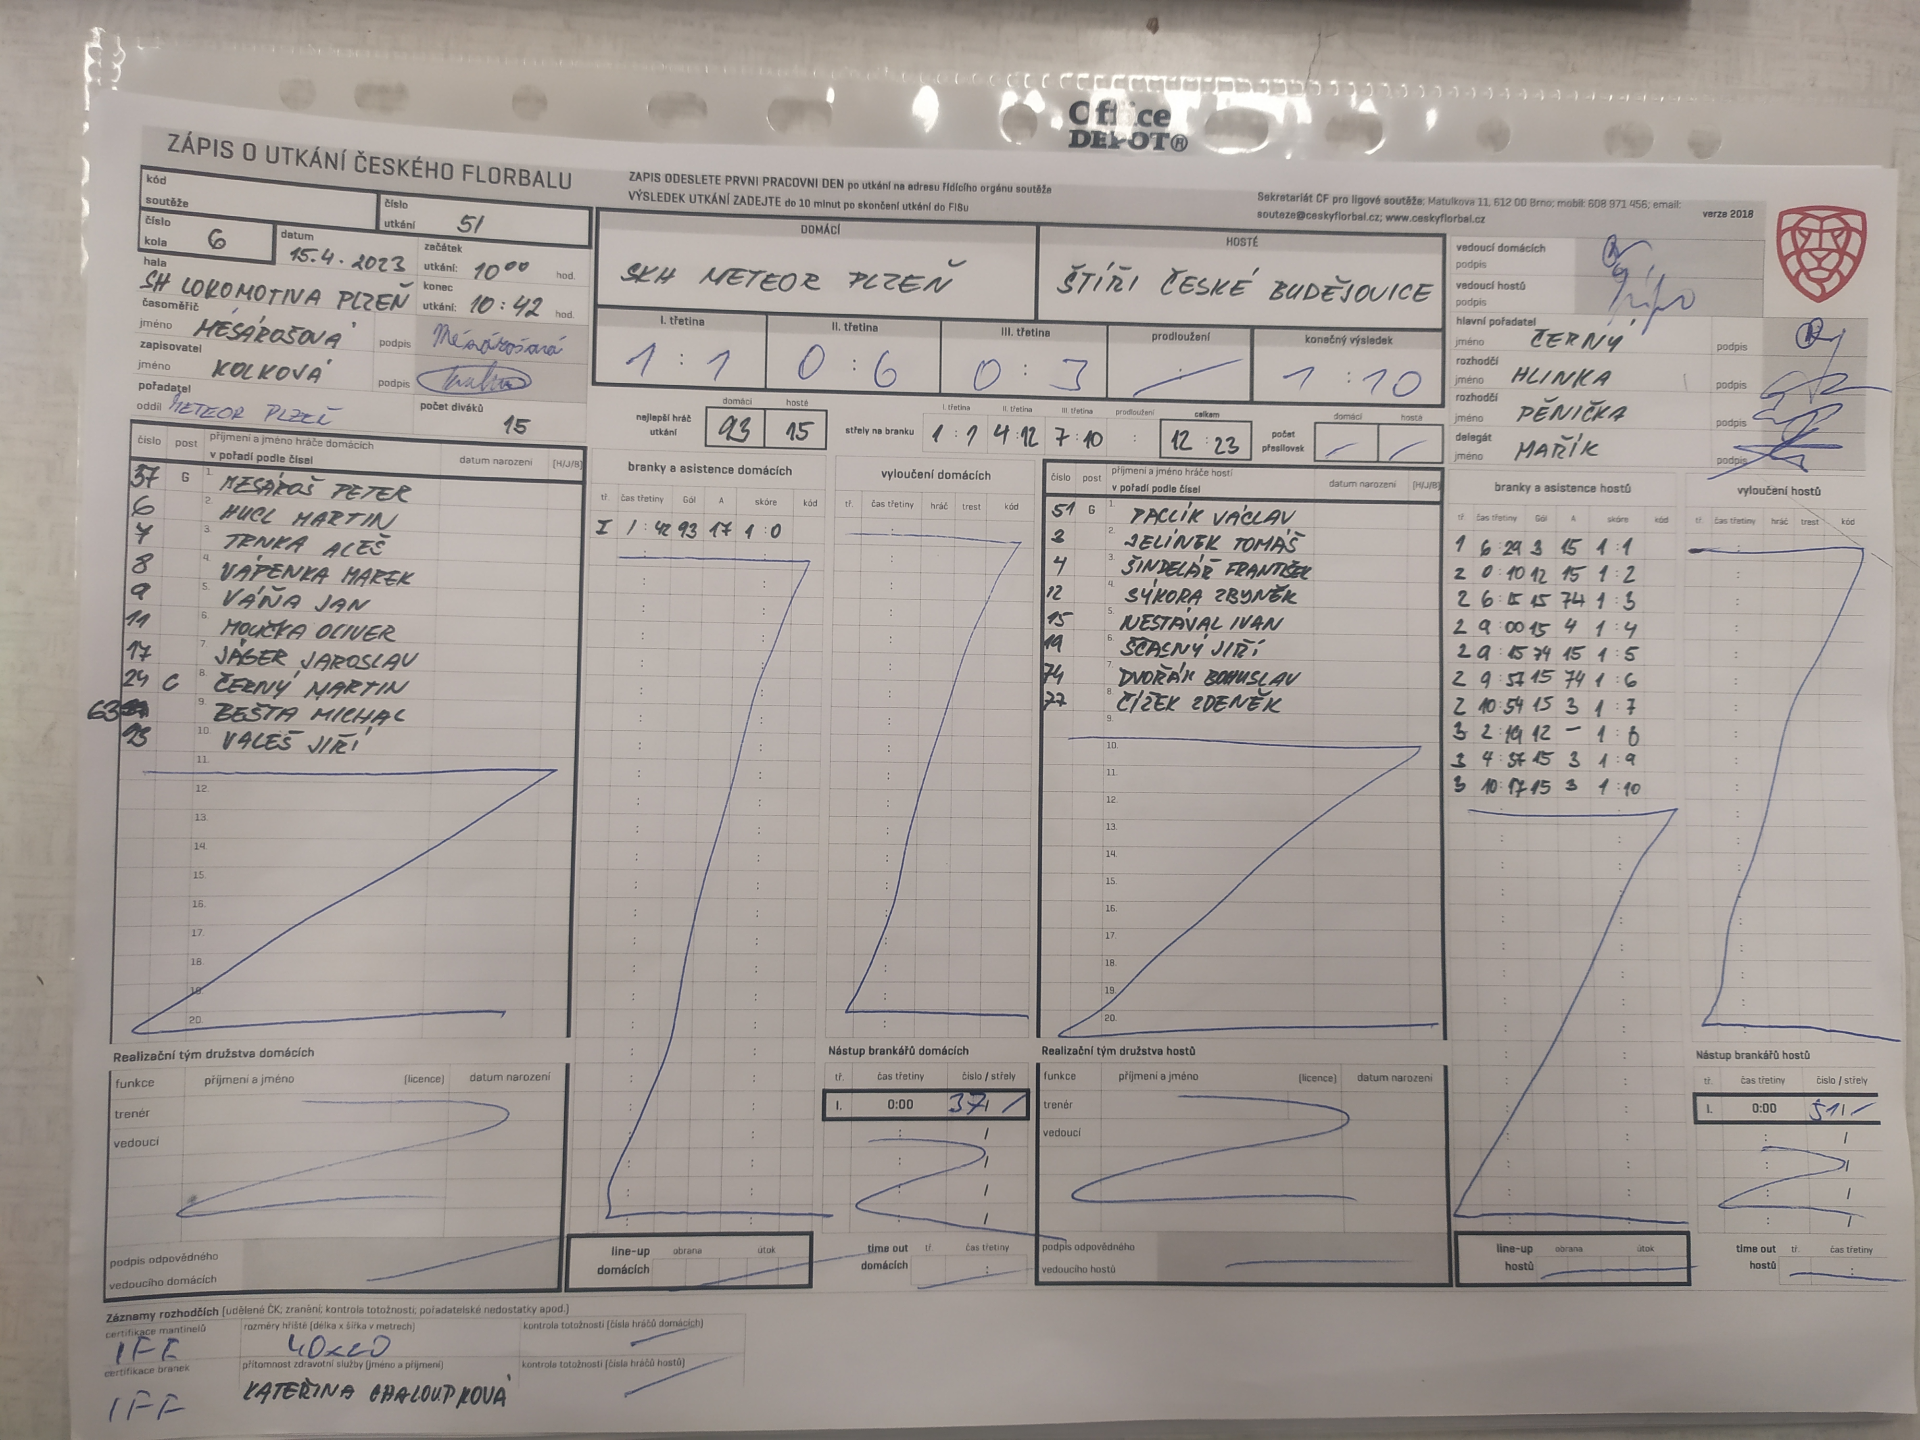 Office
DEPOT®
ZÁPIS O UTKÁNÍ ČESKÉHO FLORBALU
ZÁPIS ODEŠLETE PRVNÍ PRACOVNÍ DEN po utkání na adresu řídícího orgánu soutěže
VÝSLEDEK UTKÁNÍ ZADEJTE do 10 minut po skončení utkání do FISu
Sekretariát ČF pro ligové soutěže; Matulkova 11, 612 00 Brno; mobil: 608 971 456; email:
souteze@ceskyflorbal.cz; www.ceskyflorbal.cz
verze 2018
kód soutěže
číslo utkání 51
číslo kola 6
datum 15.4.2023
začátek utkání: 10⁰⁰ hod.
hala SH LOKOMOTIVA PLZEŇ
konec utkání: 10:42 hod.
časoměřič jméno MÉSÁROŠOVÁ podpis Mésárošová
zapisovatel jméno KOLKOVÁ podpis
pořadatel oddíl METEOR PLZEŇ
počet diváků 15
DOMÁCÍ
SKH METEOR PLZEŇ
HOSTÉ
ŠTÍŘI ČESKÉ BUDĚJOVICE
I. třetina II. třetina III. třetina prodloužení konečný výsledek
1 : 1 0 : 6 0 : 3 : 1 : 10
nejlepší hráč utkání domácí hosté
93 15
střely na branku I. třetina II. třetina III. třetina prodloužení celkem
1 : 1 4 : 12 7 : 10 : 12 : 23
počet přesilovek domácí hosté
vedoucí domácích podpis
vedoucí hostů podpis
hlavní pořadatel jméno ČERNÝ podpis
rozhodčí jméno HLINKA podpis
rozhodčí jméno PĚNIČKA podpis
delegát jméno MAŘÍK podpis
číslo post příjmení a jméno hráče domácích v pořadí podle čísel datum narození [H/J/B]
37 G 1. MESÁROŠ PETER
6 2. HUCL MARTIN
7 3. TRNKA ALEŠ
8 4. VÁPENKA MAREK
9 5. VÁŇA JAN
11 6. MOUČKA OLIVER
17 7. JÄGER JAROSLAV
24 C 8. ČERNÝ MARTIN
63 9. BEŠTA MICHAL
93 10. VALEŠ JIŘÍ
11.
12.
13.
14.
15.
16.
17.
18.
19.
20.
branky a asistence domácích
tř. čas třetiny Gól A skóre kód
I 1:42 93 17 1:0
vyloučení domácích
tř. čas třetiny hráč trest kód
číslo post příjmení a jméno hráče hostí v pořadí podle čísel datum narození [H/J/B]
51 G 1. PACLÍK VÁCLAV
3 2. JELÍNEK TOMÁŠ
4 3. ŠINDELÁŘ FRANTIŠEK
12 4. SÝKORA ZBYNĚK
15 5. NESTÁVAL IVAN
19 6. ŠČASNÝ JIŘÍ
74 7. DVOŘÁK BOHUSLAV
77 8. ČÍŽEK ZDENĚK
9.
10.
11.
12.
13.
14.
15.
16.
17.
18.
19.
20.
branky a asistence hostů
tř. čas třetiny Gól A skóre kód
1 6:29 3 15 1:1
2 0:10 12 15 1:2
2 6:15 15 74 1:3
2 9:00 15 4 1:4
2 9:15 74 15 1:5
2 9:57 15 74 1:6
2 10:54 15 3 1:7
3 2:19 12 – 1:8
3 4:57 15 3 1:9
3 10:17 15 3 1:10
vyloučení hostů
tř. čas třetiny hráč trest kód
Realizační tým družstva domácích
funkce příjmení a jméno (licence) datum narození
trenér
vedoucí
podpis odpovědného
vedoucího domácích
Nástup brankářů domácích
tř. čas třetiny číslo / střely
I. 0:00 37 /
line-up domácích obrana útok
time out domácích tř. čas třetiny
Realizační tým družstva hostů
funkce příjmení a jméno (licence) datum narození
trenér
vedoucí
podpis odpovědného
vedoucího hostů
Nástup brankářů hostů
tř. čas třetiny číslo / střely
I. 0:00 51 /
line-up hostů obrana útok
time out hostů tř. čas třetiny
Záznamy rozhodčích (udělené ČK; zranění; kontrola totožnosti; pořadatelské nedostatky apod.)
certifikace mantinelů rozměry hřiště (délka x šířka v metrech) kontrola totožnosti (čísla hráčů domácích)
IFF 40x20
certifikace branek přítomnost zdravotní služby (jméno a příjmení) kontrola totožnosti (čísla hráčů hostů)
IFF KATEŘINA CHALOUPKOVÁ